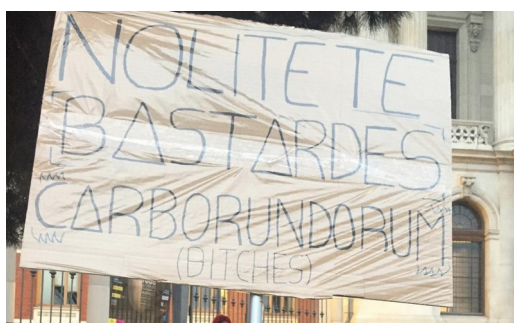 NOLITE TE
BASTARDES
CARBORUNDORUM
(BITCHES)